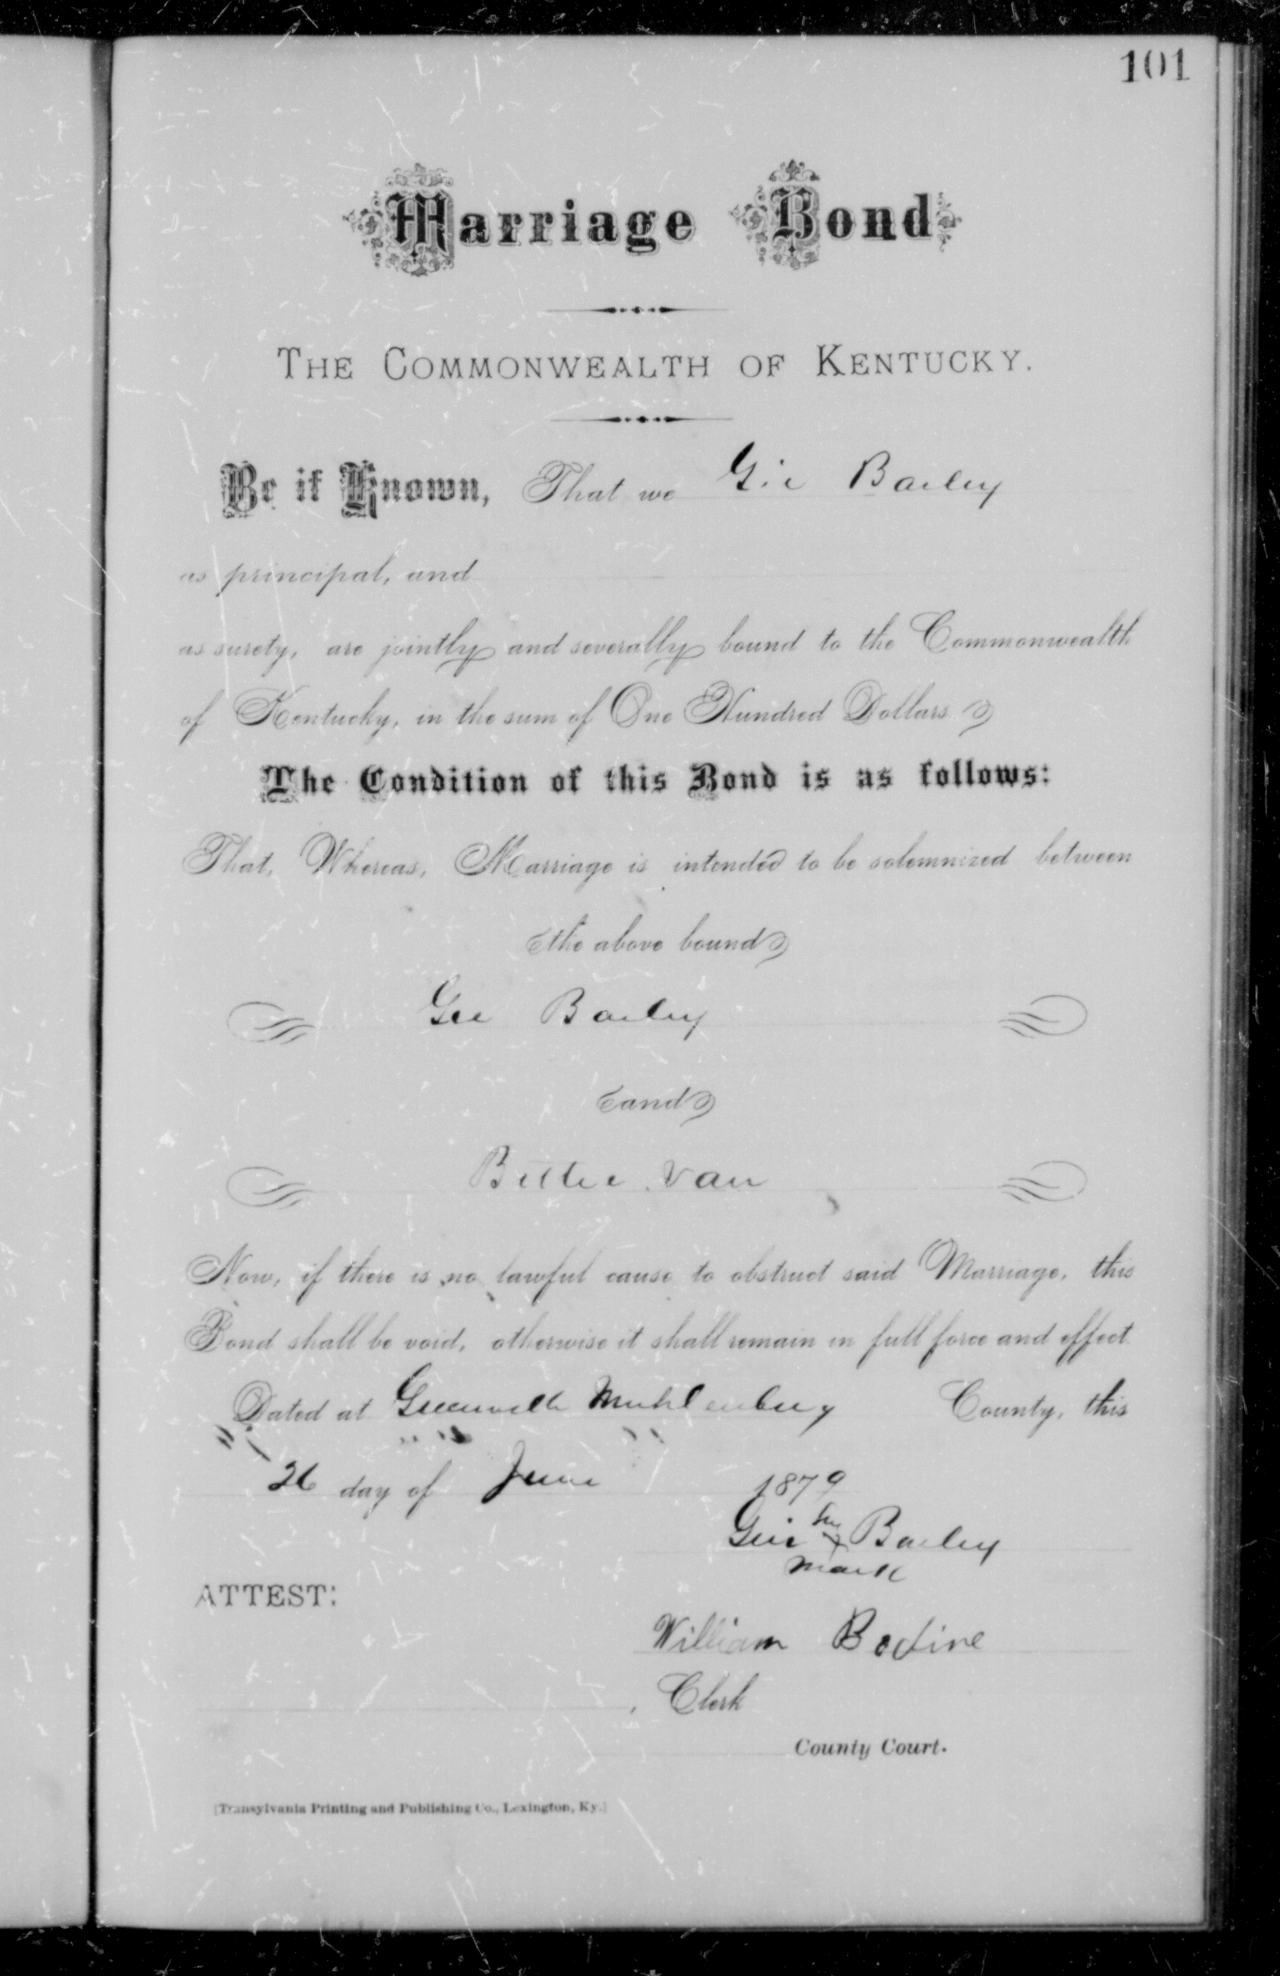 101
Marriage Bond
THE COMMONWEALTH OF KENTUCKY.
Be it Known, That we Gie Bailey
as principal, and
as surety, are jointly and severally bound to the Commonwealth
of Kentucky, in the sum of One Hundred Dollars
The Condition of this Bond is as follows:
That, Whereas, Marriage is intended to be solemnized between
the above bound
Gee Bailey
and
Bettie Van
Now, if there is no lawful cause to obstruct said Marriage, this
Bond shall be void, otherwise it shall remain in full force and effect.
Dated at Greenville Muhlenberg County, this
26 day of June 1879
his
Bailey
mark
ATTEST:
William Bodine
, Clerk
County Court.
[Transylvania Printing and Publishing Co., Lexington, Ky.]